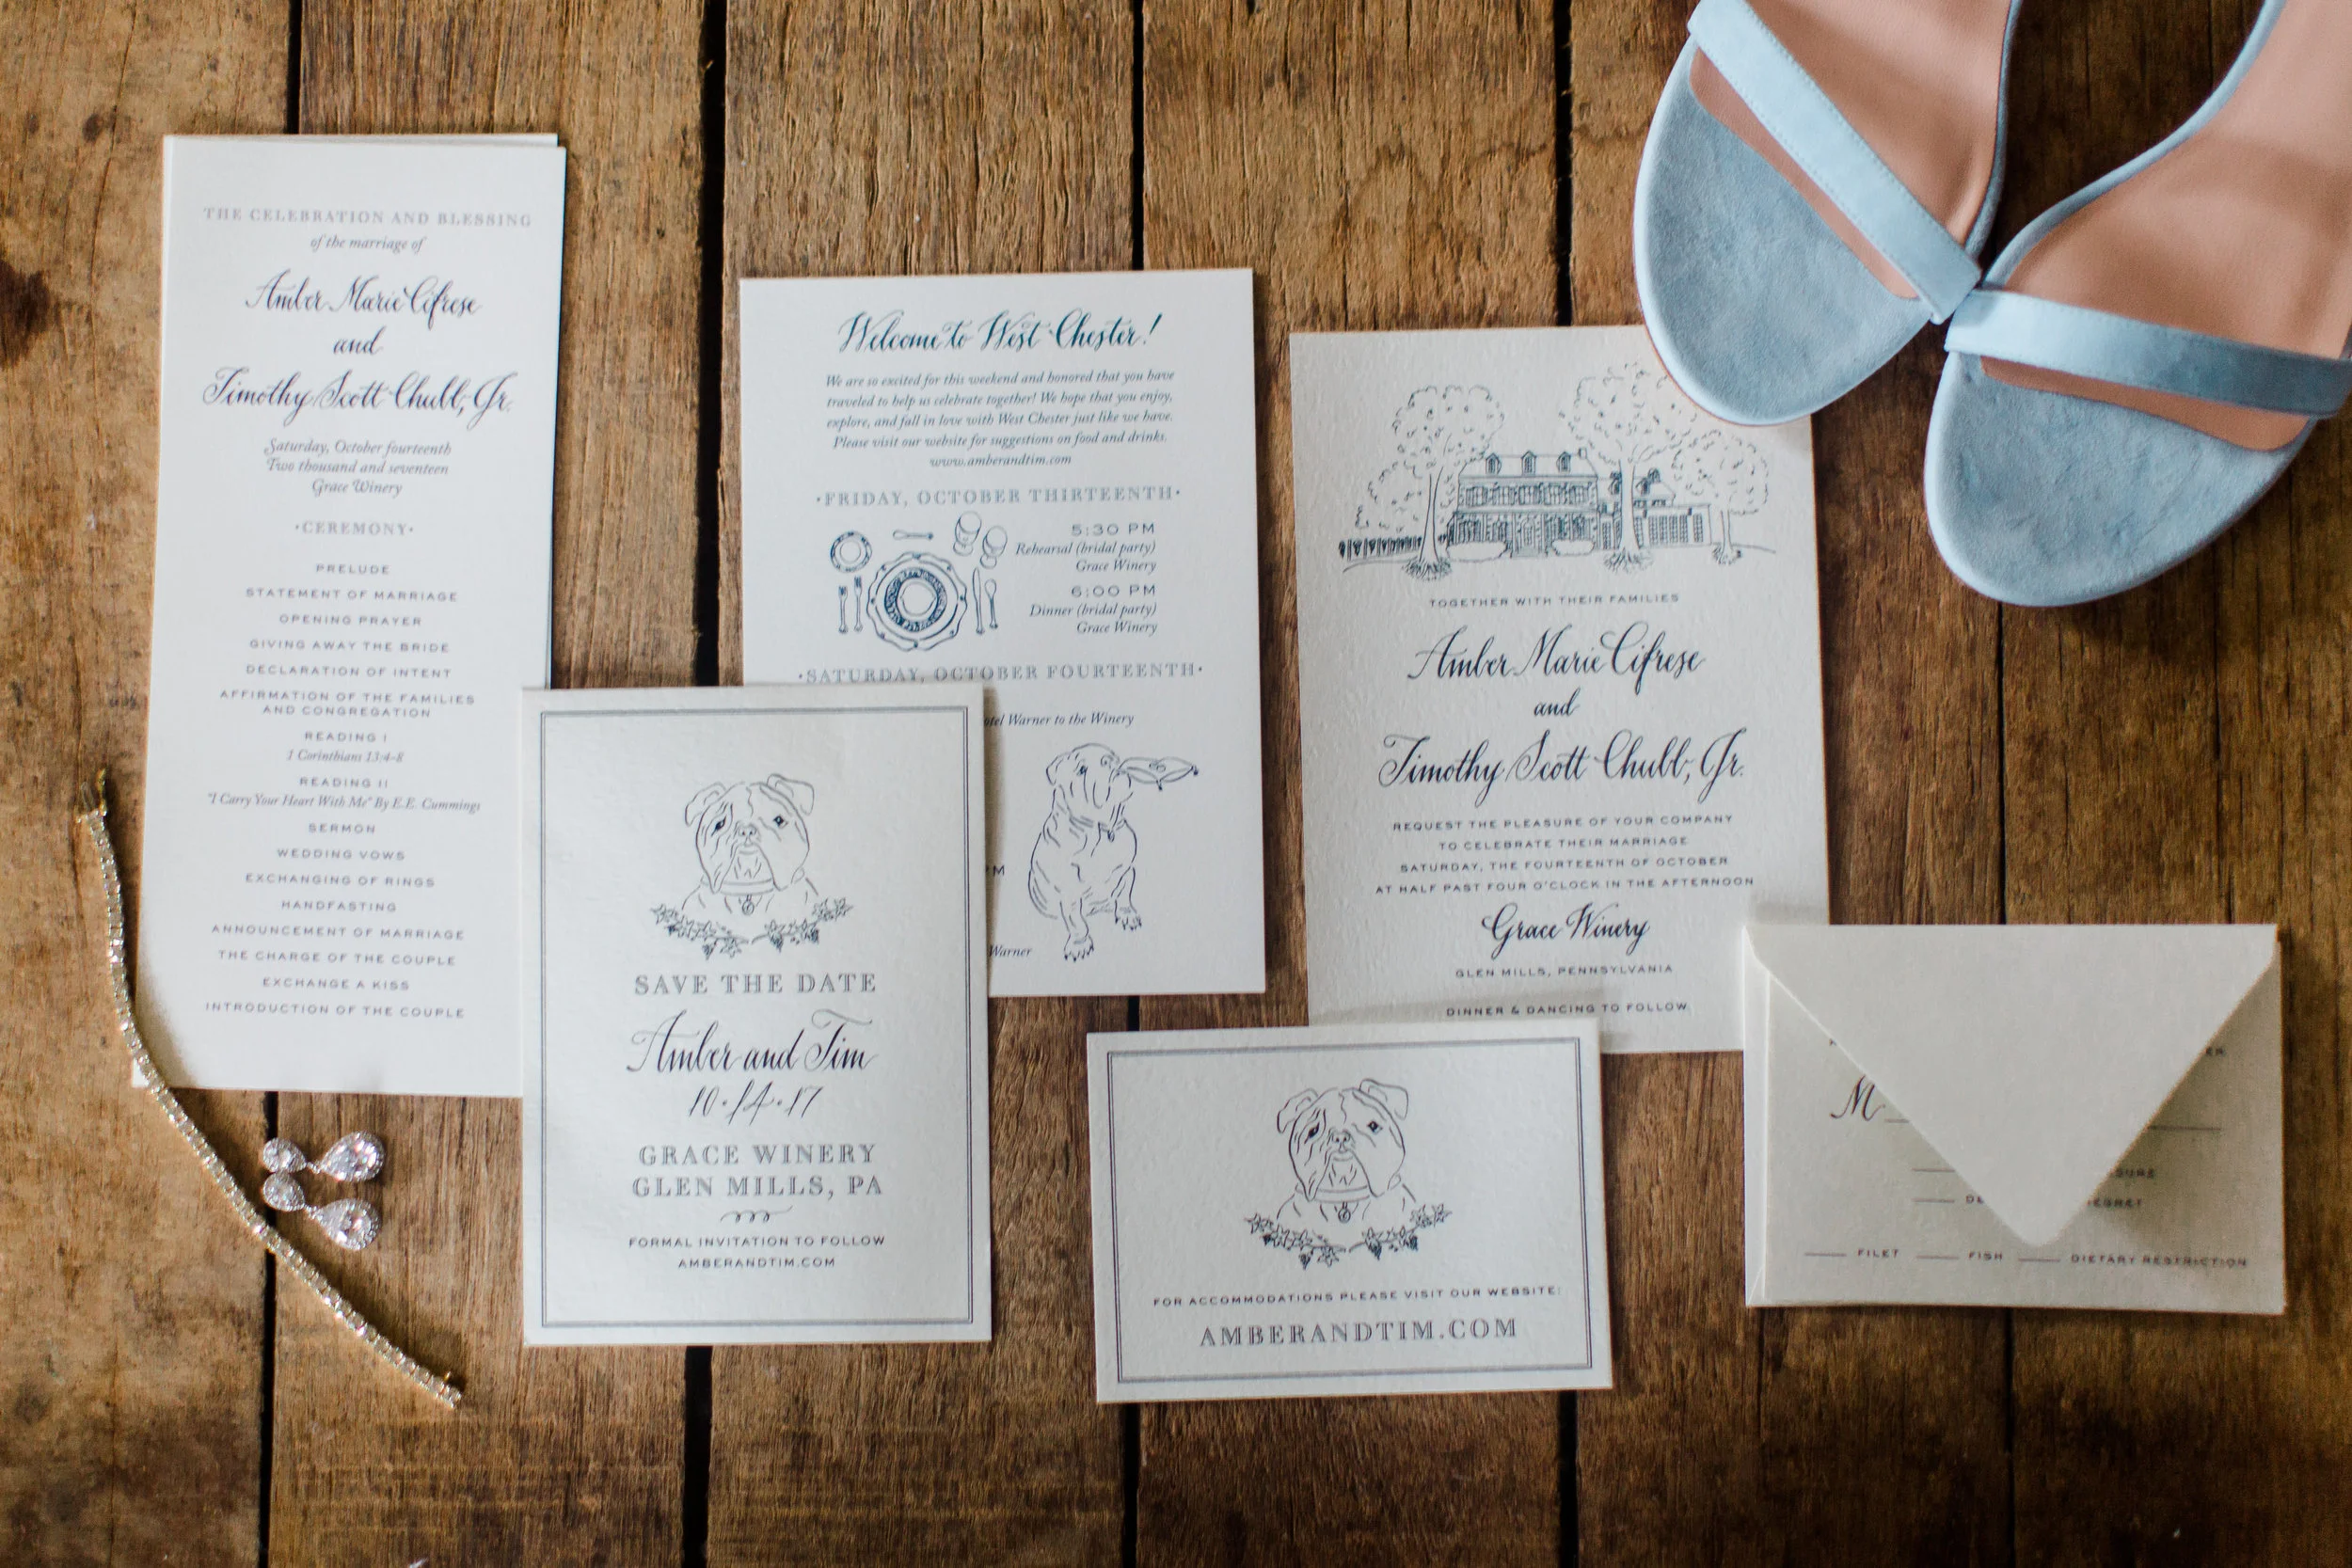 THE CELEBRATION AND BLESSING
of the marriage of
Amber Marie Cifrese
and
Timothy Scott Chubb, Jr.
Saturday, October fourteenth
Two thousand and seventeen
Grace Winery
·CEREMONY·
PRELUDE
STATEMENT OF MARRIAGE
OPENING PRAYER
GIVING AWAY THE BRIDE
DECLARATION OF INTENT
AFFIRMATION OF THE FAMILIES
AND CONGREGATION
READING I
1 Corinthians 13:4-8
READING II
"I Carry Your Heart With Me" By E.E. Cummings
SERMON
WEDDING VOWS
EXCHANGING OF RINGS
HANDFASTING
ANNOUNCEMENT OF MARRIAGE
THE CHARGE OF THE COUPLE
EXCHANGE A KISS
INTRODUCTION OF THE COUPLE
SAVE THE DATE
Amber and Tim
10·14·17
GRACE WINERY
GLEN MILLS, PA
FORMAL INVITATION TO FOLLOW
AMBERANDTIM.COM
Welcome to West Chester!
We are so excited for this weekend and honored that you have
traveled to help us celebrate together! We hope that you enjoy,
explore, and fall in love with West Chester just like we have.
Please visit our website for suggestions on food and drinks.
www.amberandtim.com
·FRIDAY, OCTOBER THIRTEENTH·
5:30 PM
Rehearsal (bridal party)
Grace Winery
6:00 PM
Dinner (bridal party)
Grace Winery
·SATURDAY, OCTOBER FOURTEENTH·
Warner to the Winery
PM
Warner
TOGETHER WITH THEIR FAMILIES
Amber Marie Cifrese
and
Timothy Scott Chubb, Jr.
REQUEST THE PLEASURE OF YOUR COMPANY
TO CELEBRATE THEIR MARRIAGE
SATURDAY, THE FOURTEENTH OF OCTOBER
AT HALF PAST FOUR O'CLOCK IN THE AFTERNOON
Grace Winery
GLEN MILLS, PENNSYLVANIA
DINNER & DANCING TO FOLLOW
FOR ACCOMMODATIONS PLEASE VISIT OUR WEBSITE:
AMBERANDTIM.COM
M
FILET FISH DIETARY RESTRICTION